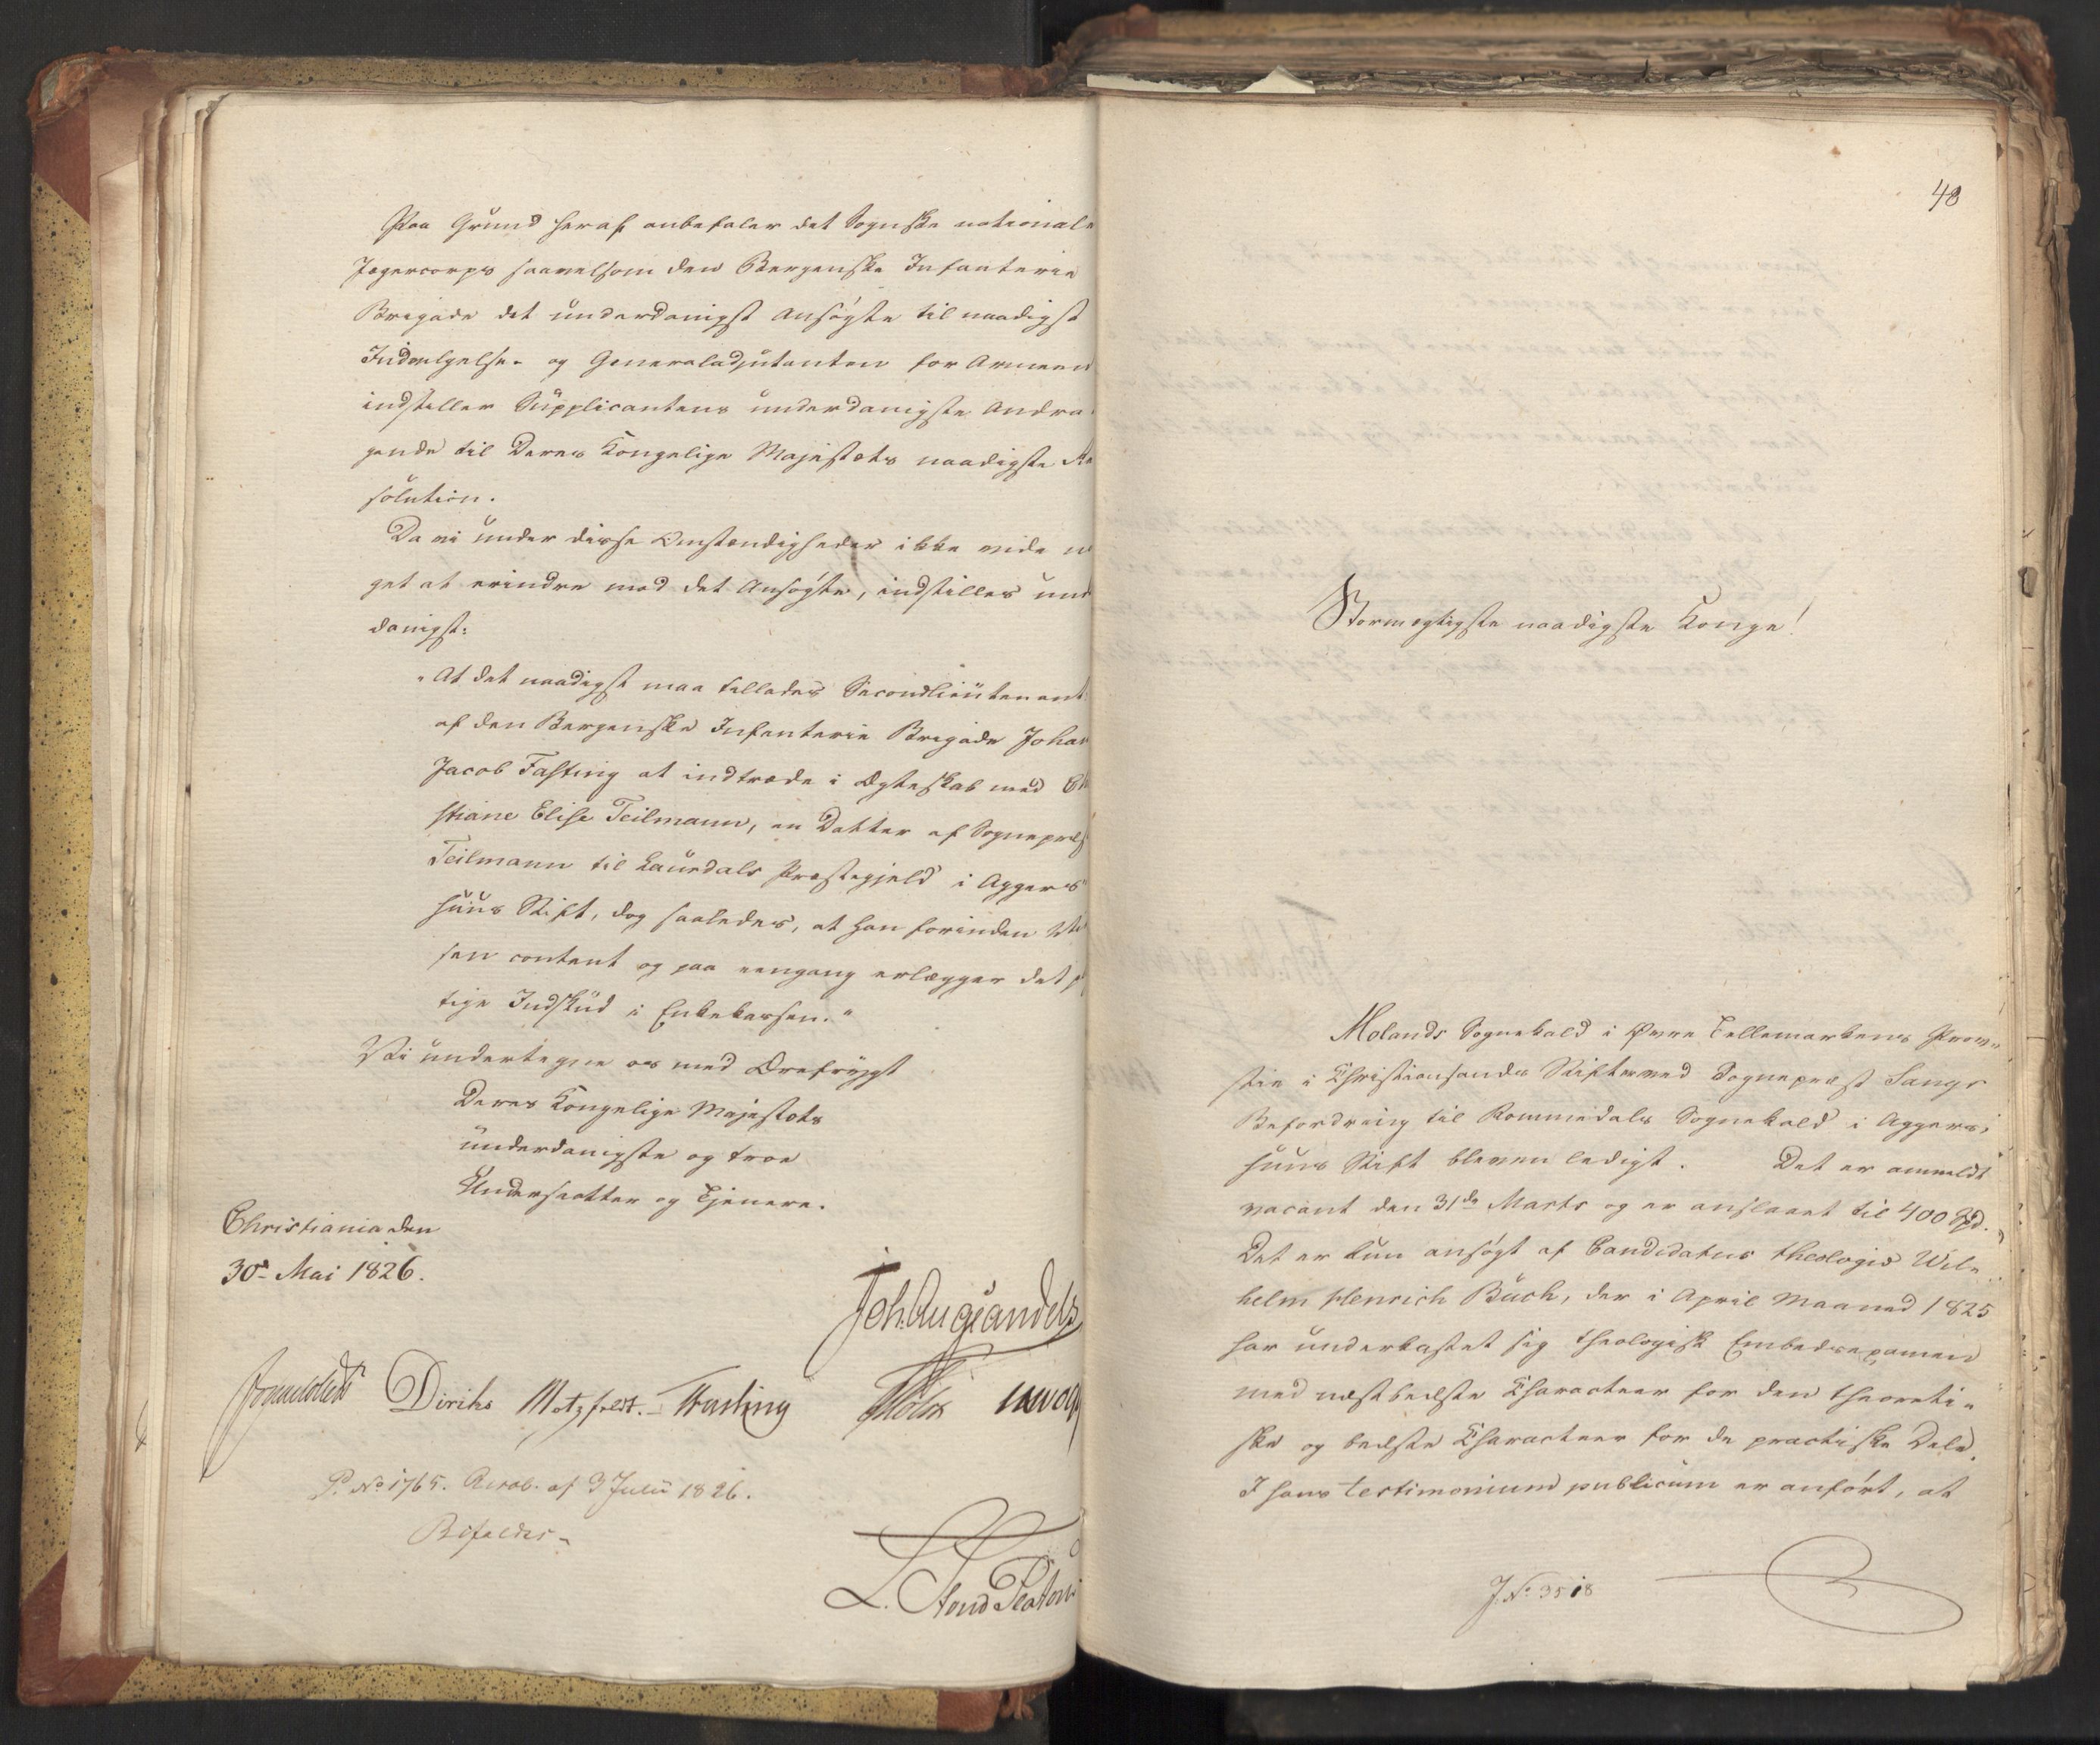 Paa Grund heraf anbefaler det Sognske nationale
Jægercorps saavelsom den Bergenske Infanterie
Brigade det underdanigst Ansøgte til naadigst
Indvilgelse og Generaladjutanten for Armeen
indstiller Supplicantens underdanigste Andra-
gende til Deres Kongelige Majestæts naadigste Re
solution.
Da vi under disse Omstændigheder ikke vide no
get at erindre mod det Ansøgte, indstilles und
danigst:
"At det naadigst maa tillades Secondlieutenant
af den Bergenske Infanterie Brigade Johan
Jacob Fasting at indtræde i Ægteskab med Ch
stiane Elise Teilmann, en Datter af Sognepræs
Teilmann til Laurdals Præstegjeld i Aggers-
huus Stift, dog saaledes, at han forinden
sen contant og paa eengang erlægger det
tige Indskud i Enkekassen."
Vi undertegne os med Ærefrygt
Deres Kongelige Majestæts
underdanigste og troe
Undersaatter og Tjenere.
Christiania den
30 Mai 1826.
Joh. Aug Sandels
Sommerhielm Diriks Motzfeldt. Fasting Holst
P. No 1765. Resol. af 3 Julii 1826.
Bifaldes
48
Stormægtigste naadigste Konge!
Molands Sognekald i Øvre Tellemarkens Prov-
stie i Christiansands Stift er ved Sognepræst Langs
Befordring til Rommedals Sognekald i Aggers-
huus Stift bleven ledigt. Det er anmeldt
vacant den 31de Marts og er anslaaet til 400 Spd.
Det er kun ansøgt af Candidatus theologiæ Wil-
helm Henrich Buch, der i April Maaned 1825
har underkastet sig theologisk Embedsexamen
med næstbedste Characteer for den theoreti-
ske og bedste Characteer for de practiske Dele.
I hans testimonium publicum er anført, at
J. No 3518